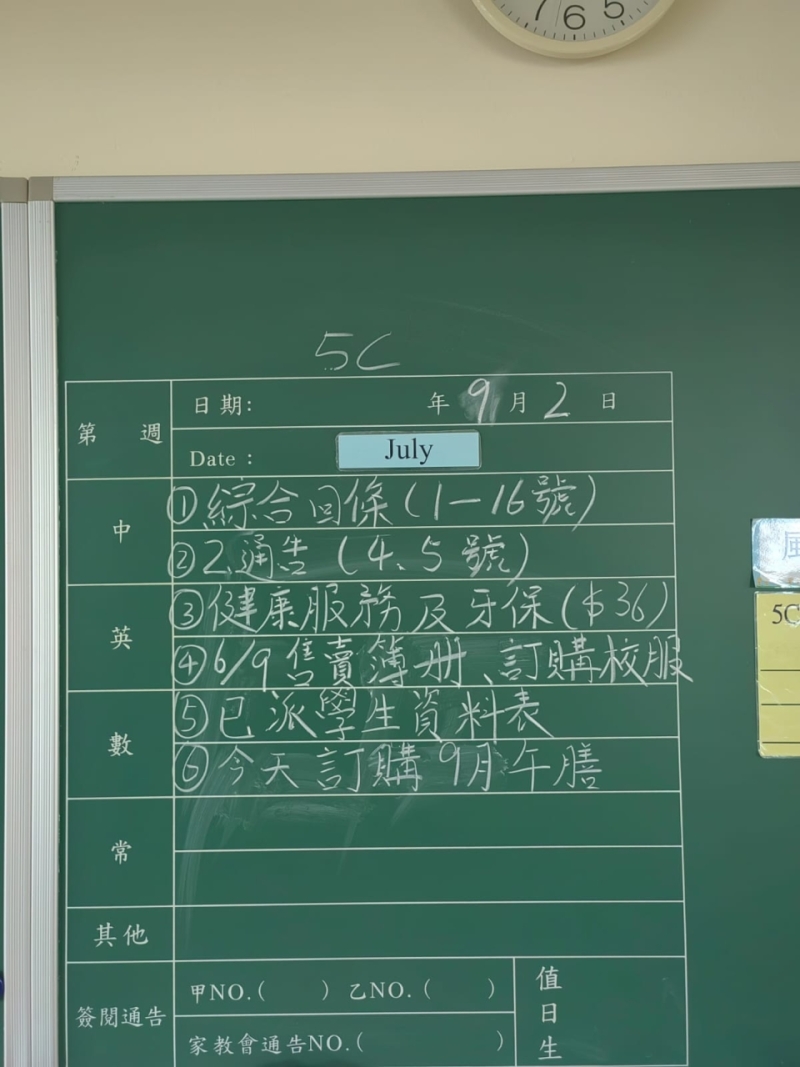 7 6 5
5C
第 週
日期: 年 9 月 2 日
Date : July
中
①綜合回條(1-16號)
②2通告(4、5號)
英
③健康服務及牙保($36)
④6/9售賣簿册、訂購校服
數
⑤已派學生資料表
⑥今天訂購9月午膳
常
其他
簽閱通告
甲NO.( ) 乙NO.( )
家教會通告NO.( )
值日生
風
5C